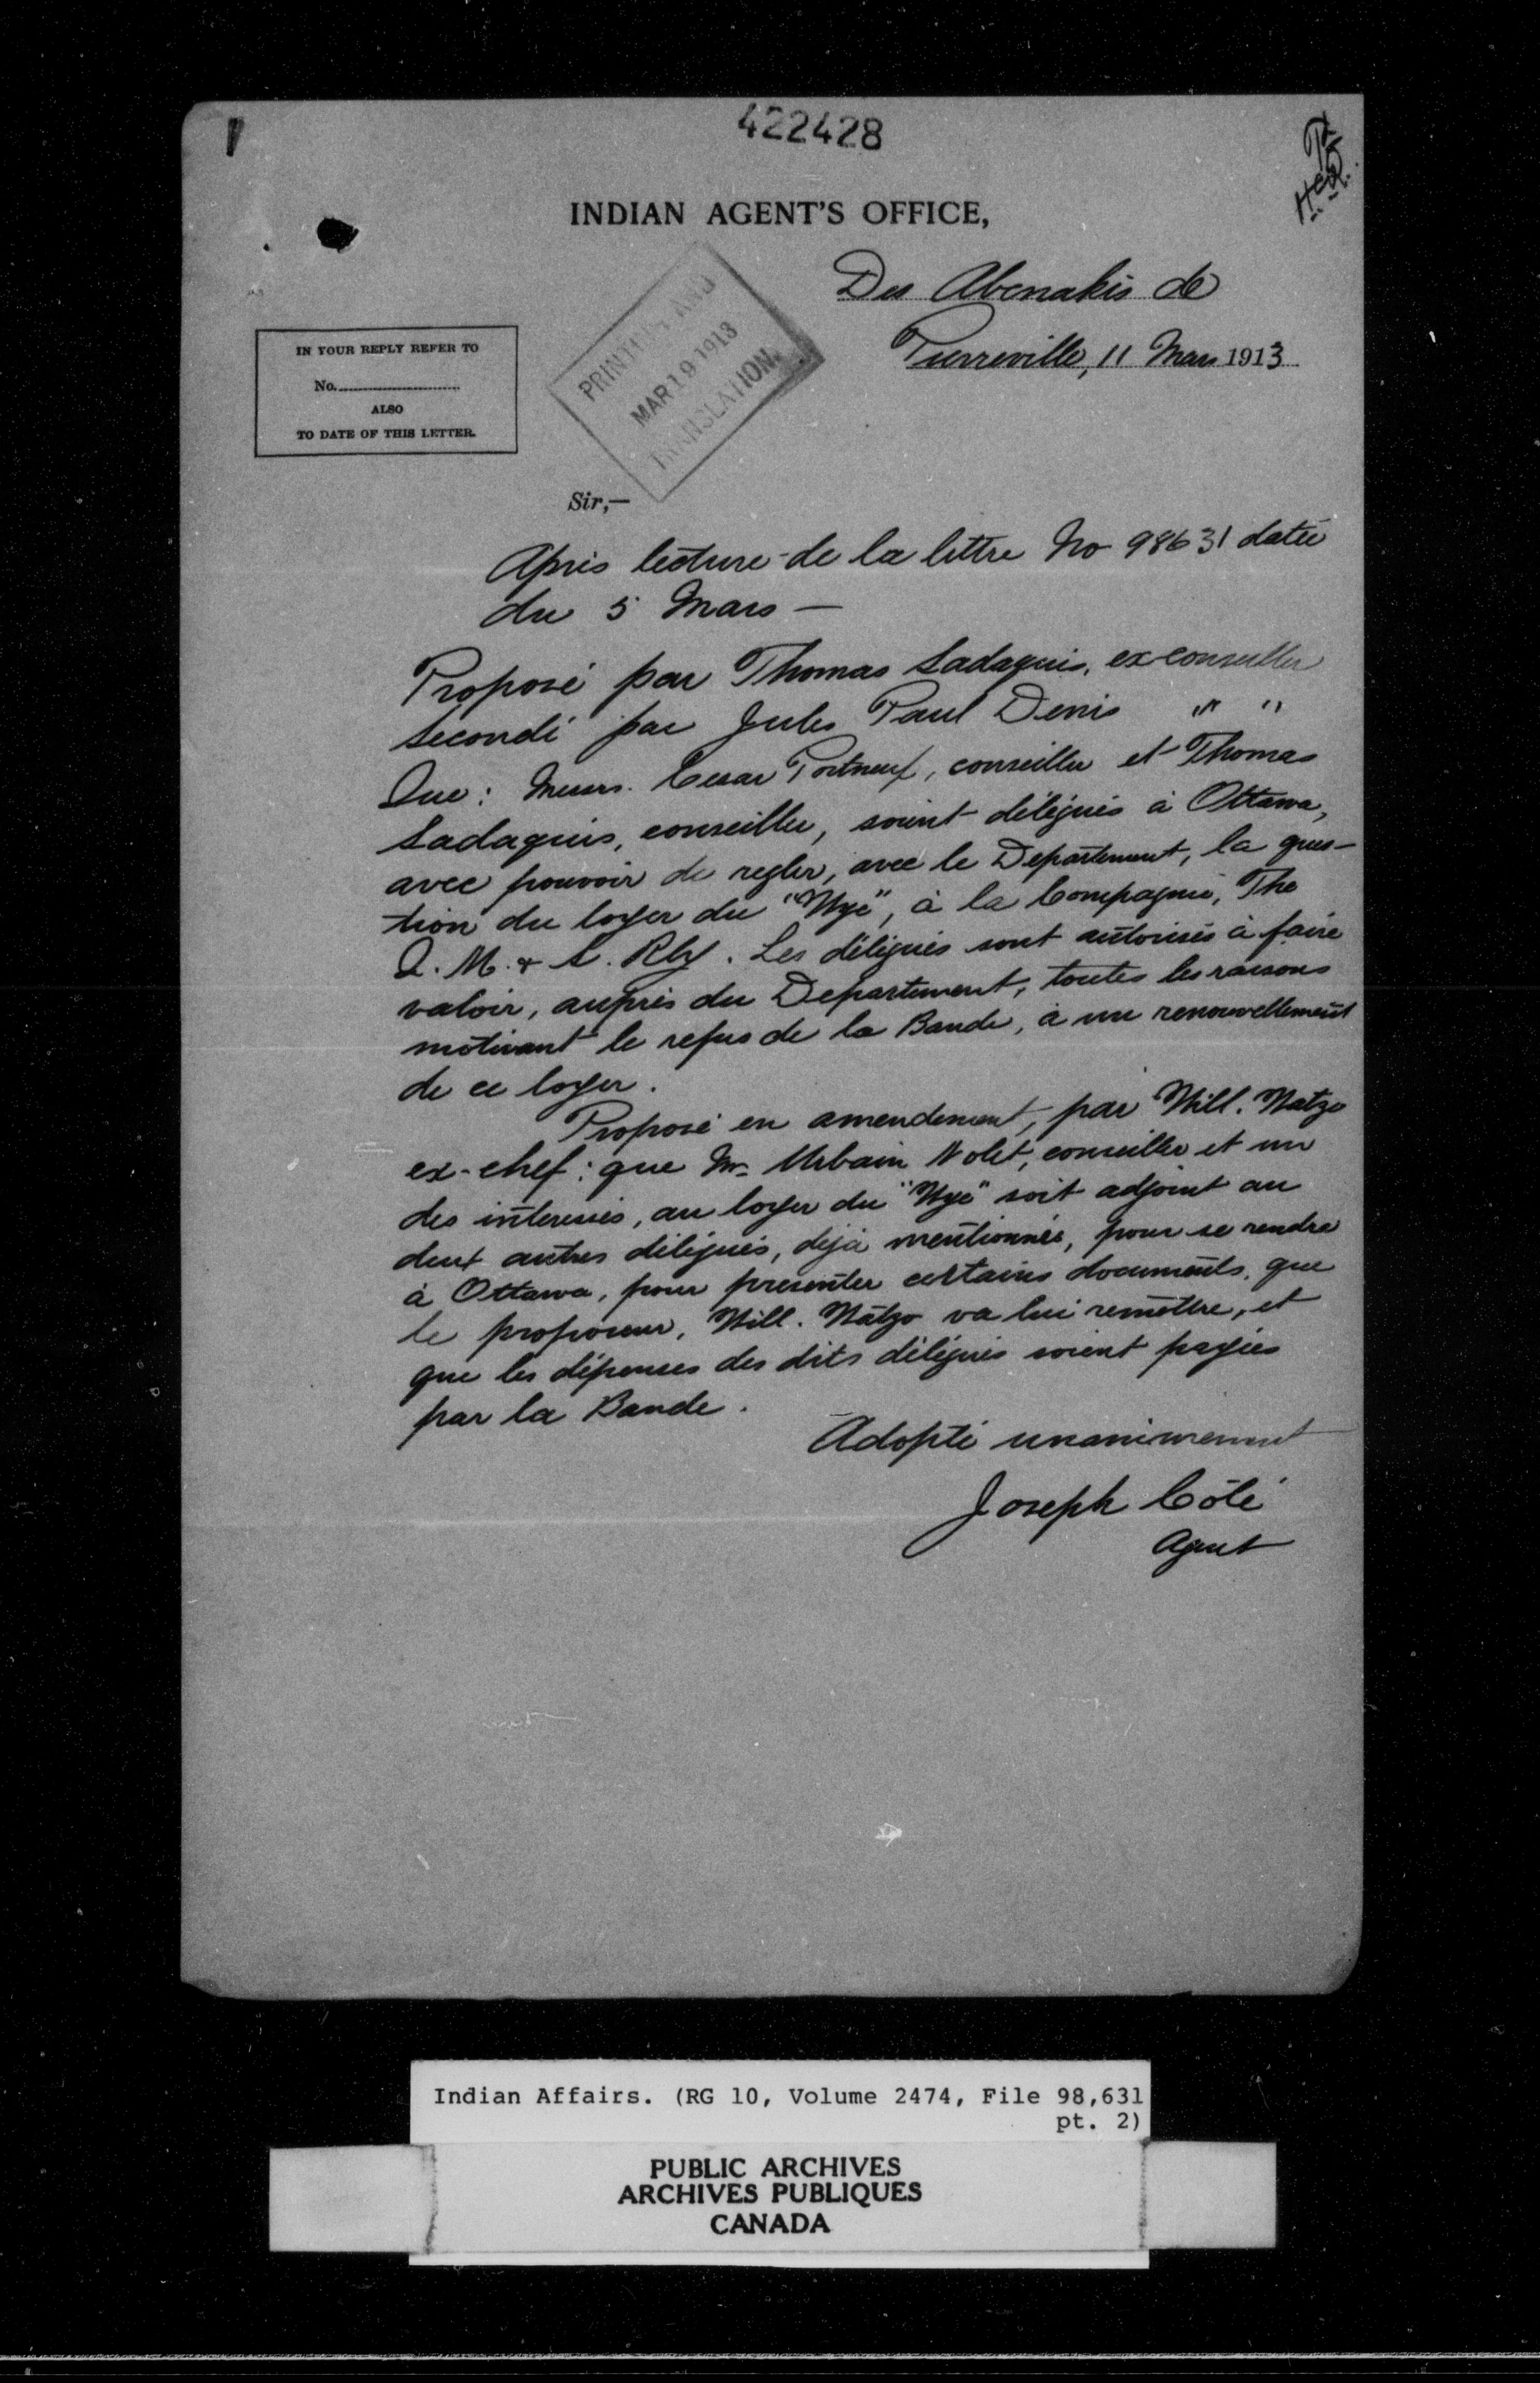 422428
INDIAN AGENT'S OFFICE,
Des Abenakis de
Pierreville, 11 Mars 1913
IN YOUR REPLY REFER TO
No.
ALSO
TO DATE OF THIS LETTER.
PRINTING AND
MAR 19 1913
TRANSLATION.
Sir,—
Après lecture de la lettre No 98631 datée
du 5 Mars —
Proposé par Thomas Sadaquis, ex-conseiller
Secondé par Jules Paul Denis " "
Que : Messrs. Cesar Portneuf, conseiller et Thomas
Sadaquis, conseiller, soient délégués à Ottawa,
avec pouvoir de regler, avec le Departement, la ques-
tion du loyer du "Wye", à la Compagnie, The
Q. M. & S. Rly. Les délégués sont autorisés à faire
valoir, auprès du Departement, toutes les raisons
motivant le refus de la Bande, à un renouvellement
de ce loyer.
Proposé en amendement, par Will. Watzo
ex-chef : que Mr. Urbain Nolet, conseiller et un
des interessés, au loyer du "Wye" soit adjoint au
deux autres délégués, déjà mentionnés, pour se rendre
à Ottawa, pour presenter certains documents, que
le proposeur, Will. Watzo va lui remettre, et
que les dépenses des dits délégués soient payées
par la Bande.
Adopté unanimement
Joseph Côté
Agent
Indian Affairs. (RG 10, Volume 2474, File 98,631
pt. 2)
PUBLIC ARCHIVES
ARCHIVES PUBLIQUES
CANADA